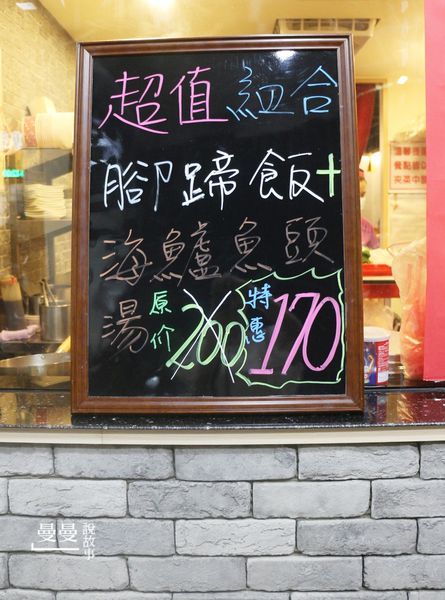 超值組合
腳蹄飯+
海鱸魚頭
湯 原价 200 特惠 170
曼曼
說故事